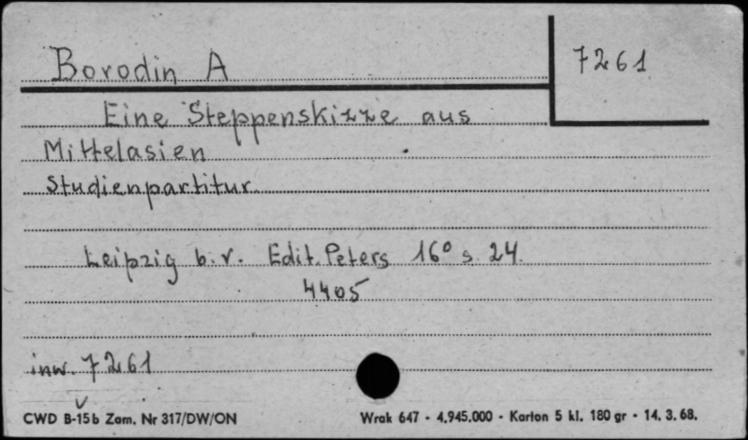 Borodin A
7261
Eine Steppenskizze aus
Mittelasien
Studienpartitur
Leipzig b.r. Edit. Peters 16° s. 24.
4405
inw. 7261
CWD B-15b Zam. Nr 317/DW/ON
Wrak 647 - 4.945.000 - Karton 5 kl. 180 gr - 14. 3. 68.